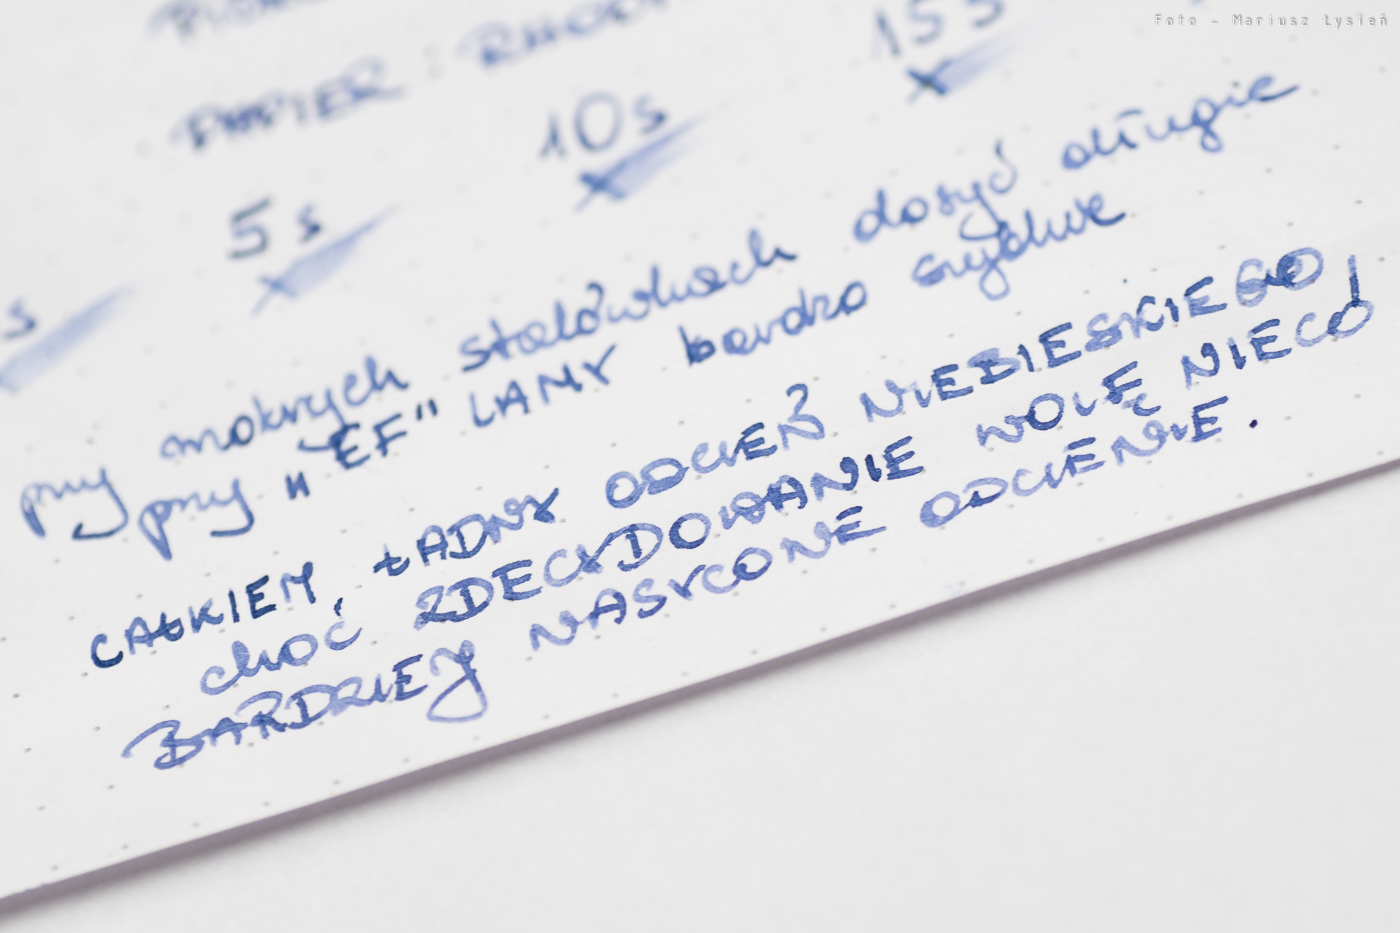 Foto - Mariusz Łysień
PAPIER :
15 s
10 s
5 s
s
przy mokrych stalówkach dosyć długie
przy „EF" LAMY bardzo szybkie
CAŁKIEM ŁADNY ODCIEŃ NIEBIESKIEGO,
choć ZDECYDOWANIE WOLĘ NIECO
BARDZIEJ NASYCONE ODCIENIE.